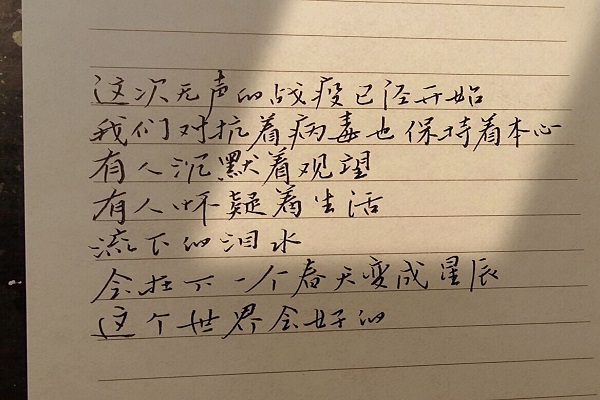 这次无声的战疫已经开始
我们对抗着病毒也保持着本心
有人沉默着观望
有人怀疑着生活
流下的泪水
会在下一个春天变成星辰
这个世界会好的